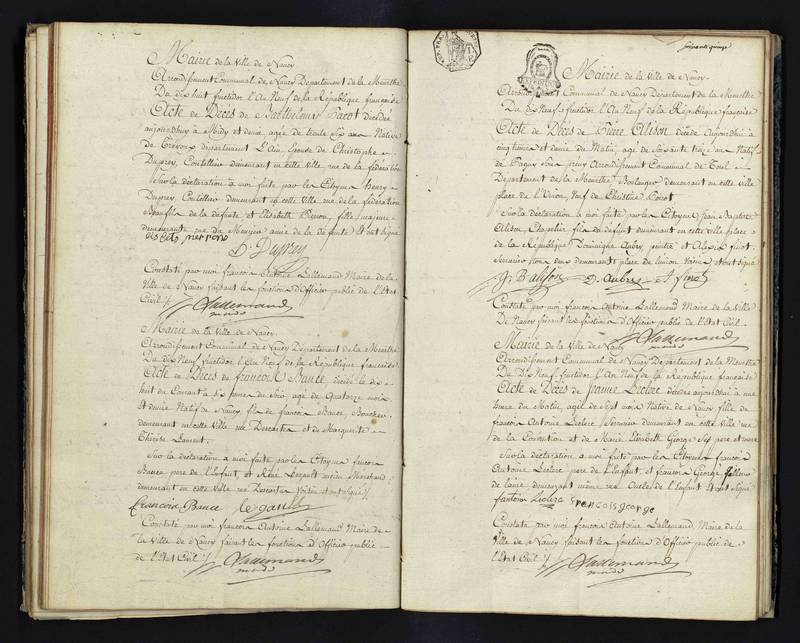 Mairie de la Ville de Nancy
Arrondissement Communal de Nancy Département de la Meurthe
Du Dix huit fructidor l'An Neuf de la République française
Acte de Décès de décédée
aujourd'huy à Midy et demie agée de trente Six ans Native
de département de L'Ain, Epouse de Christophe
Duprey, Coutellier demeurant en cette Ville rue de la fédération
Sur la déclaration à moi faite par les Citoyens Henry
Duprey Coutellier demeurant en cette Ville rue de la féderation
Beaufils de la défunte et Elisabeth Pierson, fille majeure
demeurante rue du amie de la défunte Et ont signé
D. Duprey
Constaté par moi françois Antoine Lallemand Maire de la
Ville de Nancy faisant les fonctions d'Officier public de l'Etat
Civil
Lallemand
Mairie de la Ville de Nancy
Arrondissement Communal de Nancy Département de la Meurthe
Du dix Neuf fructidor l'An Neuf de la République française
Acte de Décès de françois Bauce décédé le dix
huit du Courant à Six heures du Soir, agé de Quatorze mois
Et demie Natif de Nancy fils de françois Bauce
demeurant en cette Ville rue Descartes et de Marguerite
Thérèse Laurent.
Sur la déclaration à moi faite par les Citoyens françois
Bauce pere de l'Enfant, et René Legault ancien Marchand
demeurant en cette Ville rue Descartes Voisin et ont signé
francois Bauce Legault
Constaté par moi françois Antoine Lallemand Maire de
la Ville de Nancy faisant les fonctions d'Officier public
de l'Etat Civil
Lallemand
soixante quinze
Mairie de la Ville de Nancy
Arrondissement Communal de Nancy Département de la Meurthe
Du dix Neuf fructidor l'An Neuf de la République française
Acte de Décès de Pierre Alison décédé Aujourd'hui à
cinq heures et demie du Matin, agé de Soixante treize ans Natif
de Pagny Arrondissement Communal de Toul
Departement de la Meurthe Boulanger demeurant en cette Ville
place de l'Union, Veuf de Christine
Sur la déclaration à moi faite par les Citoyens Jean Baptiste
Alison, Chapelier fils du défunt demeurant en cette Ville place
de la République Dominique Aubry peintre et Alexis finot
Serrurier tous deux demeurants place de l'union Voisins et ont signé
D. Aubry A finot
Constaté par moi françois Antoine Lallemand Maire de la Ville
De Nancy faisant les fonctions d'Officier public de l'Etat Civil.
Lallemand
Mairie de la Ville de Nancy
Arrondissement Communal de Nancy Département de la Meurthe
Du Dix Neuf fructidor l'An Neuf de la République française
Acte de Décès de Jeanne Leclerc décédée aujourd'hui à une
heure du Matin, agée de Sept mois Native de Nancy fille de
francois Antoine Leclerc, Serrurier demeurant en cette Ville rue
de la Convention et de Marie Elisabeth George Ses pere et mere
Sur la déclaration à moi faite par les Citoyens francois
Antoine Leclerc pere de l'Enfant, et francois George
de laine demeurant même rue Oncle de l'Enfant et ont signé
fantoine Leclerc francois george
Constaté par moi françois Antoine Lallemand, Maire de la
Ville de Nancy faisant les fonctions d'Officier public de
l'Etat Civil
Lallemand